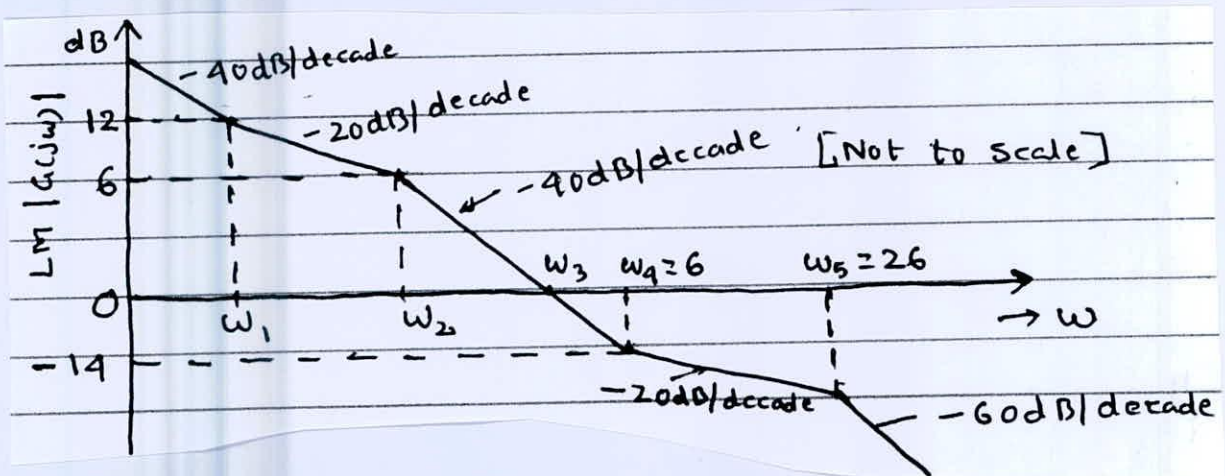 dB
-40dB/decade
-20dB/decade
12
-40dB/decade [Not to scale]
6
LM |G(jω)|
ω3 ω4=6 ω5=26
0
ω1 ω2 → ω
-14
-20dB/decade
-60dB/decade